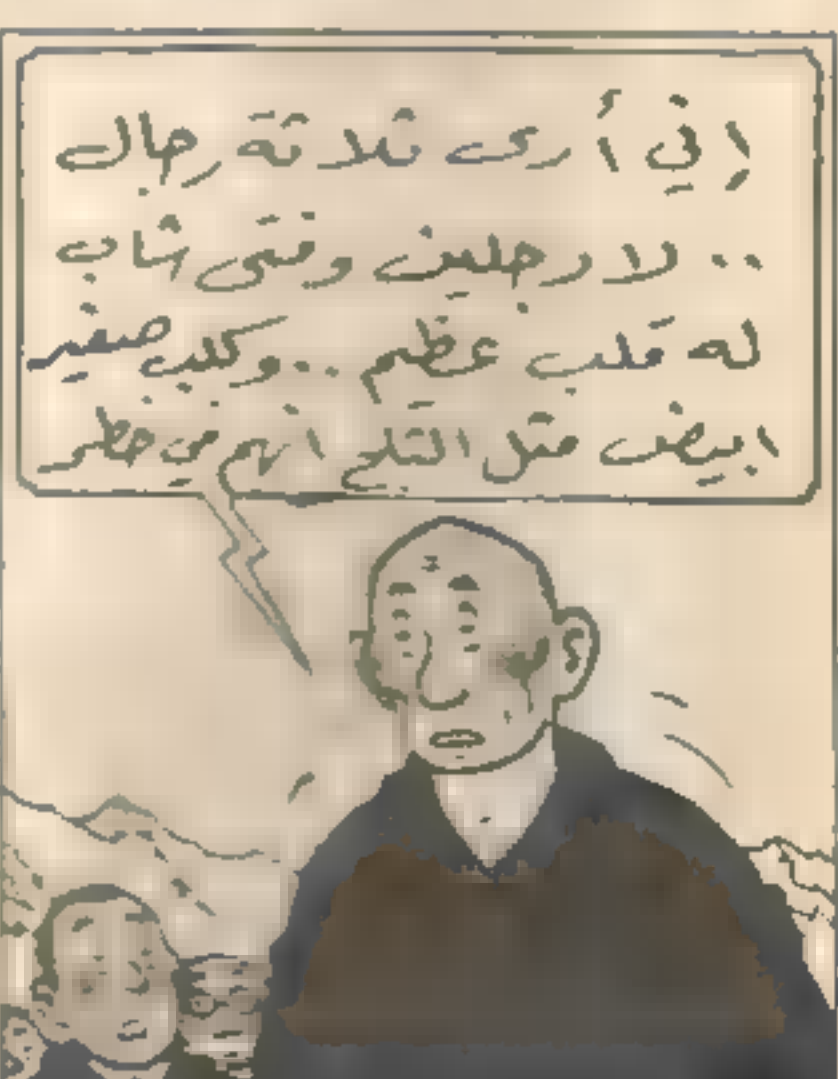 إني أرى ثلاثة رجال
.. لا رجلين وفتى شاب
له قلب عظيم .. وكلب صغير
ابيض مثل الثلج انهم في خطر